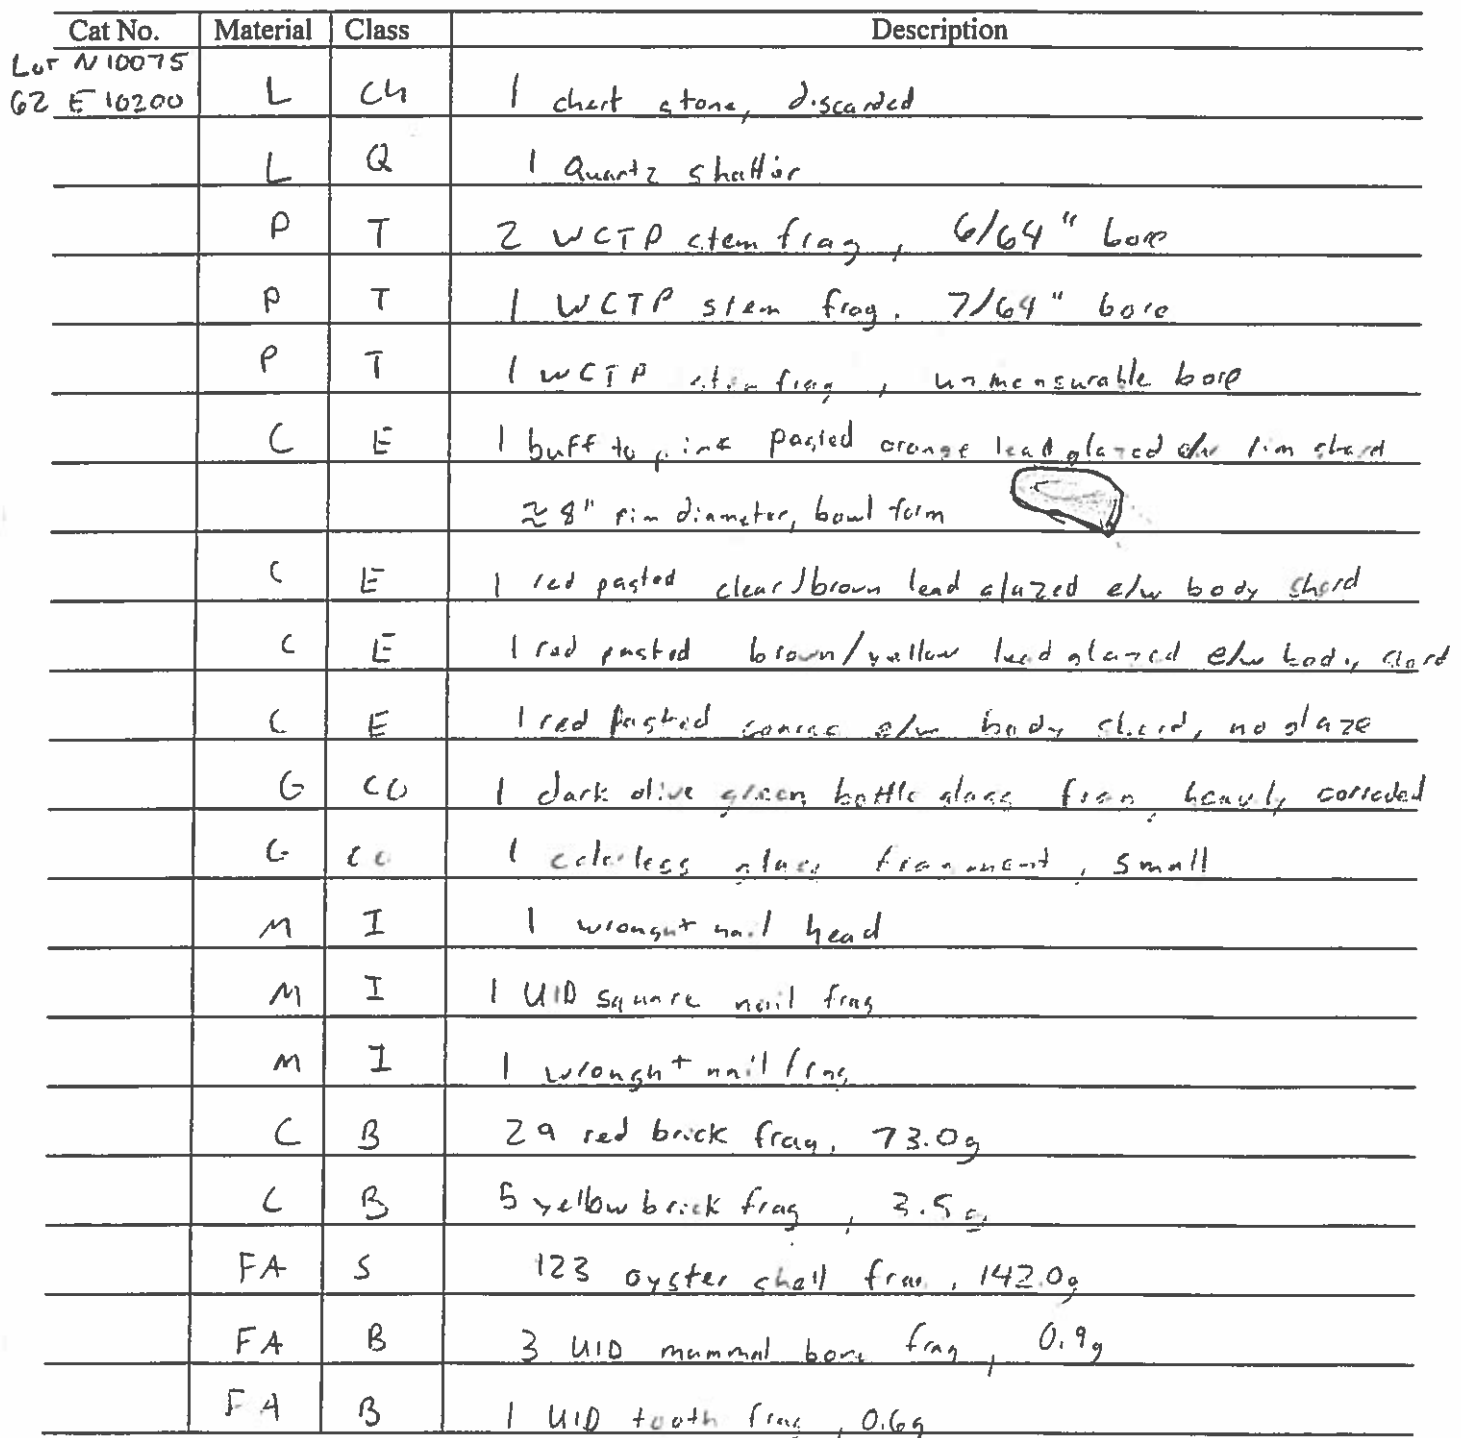 Cat No. Material Class Description
Lot N10075
62 E10200 L Ch 1 chert stone, discarded
L Q 1 Quartz shatter
P T 2 WCTP stem frag, 6/64" bore
P T 1 WCTP stem frag, 7/64" bore
P T 1 WCTP stem frag, unmeasurable bore
C E 1 buff to pink pasted orange lead glazed e/w rim shard
≈ 8" rim diameter, bowl form
C E 1 red pasted clear/brown lead glazed e/w body shard
C E 1 red pasted brown/yellow lead glazed e/w body shard
C E 1 red pasted coarse e/w body shard, no glaze
G CO 1 dark olive green bottle glass frag, heavily corroded
G CO 1 colorless glass fragment, small
M I 1 wrought nail head
M I 1 UID square nail frag
M I 1 wrought nail frag
C B 29 red brick frag, 73.0g
C B 5 yellow brick frag, 3.5g
FA S 123 oyster shell frag, 142.0g
FA B 3 UID mammal bone frag, 0.9g
FA B 1 UID tooth frag, 0.6g